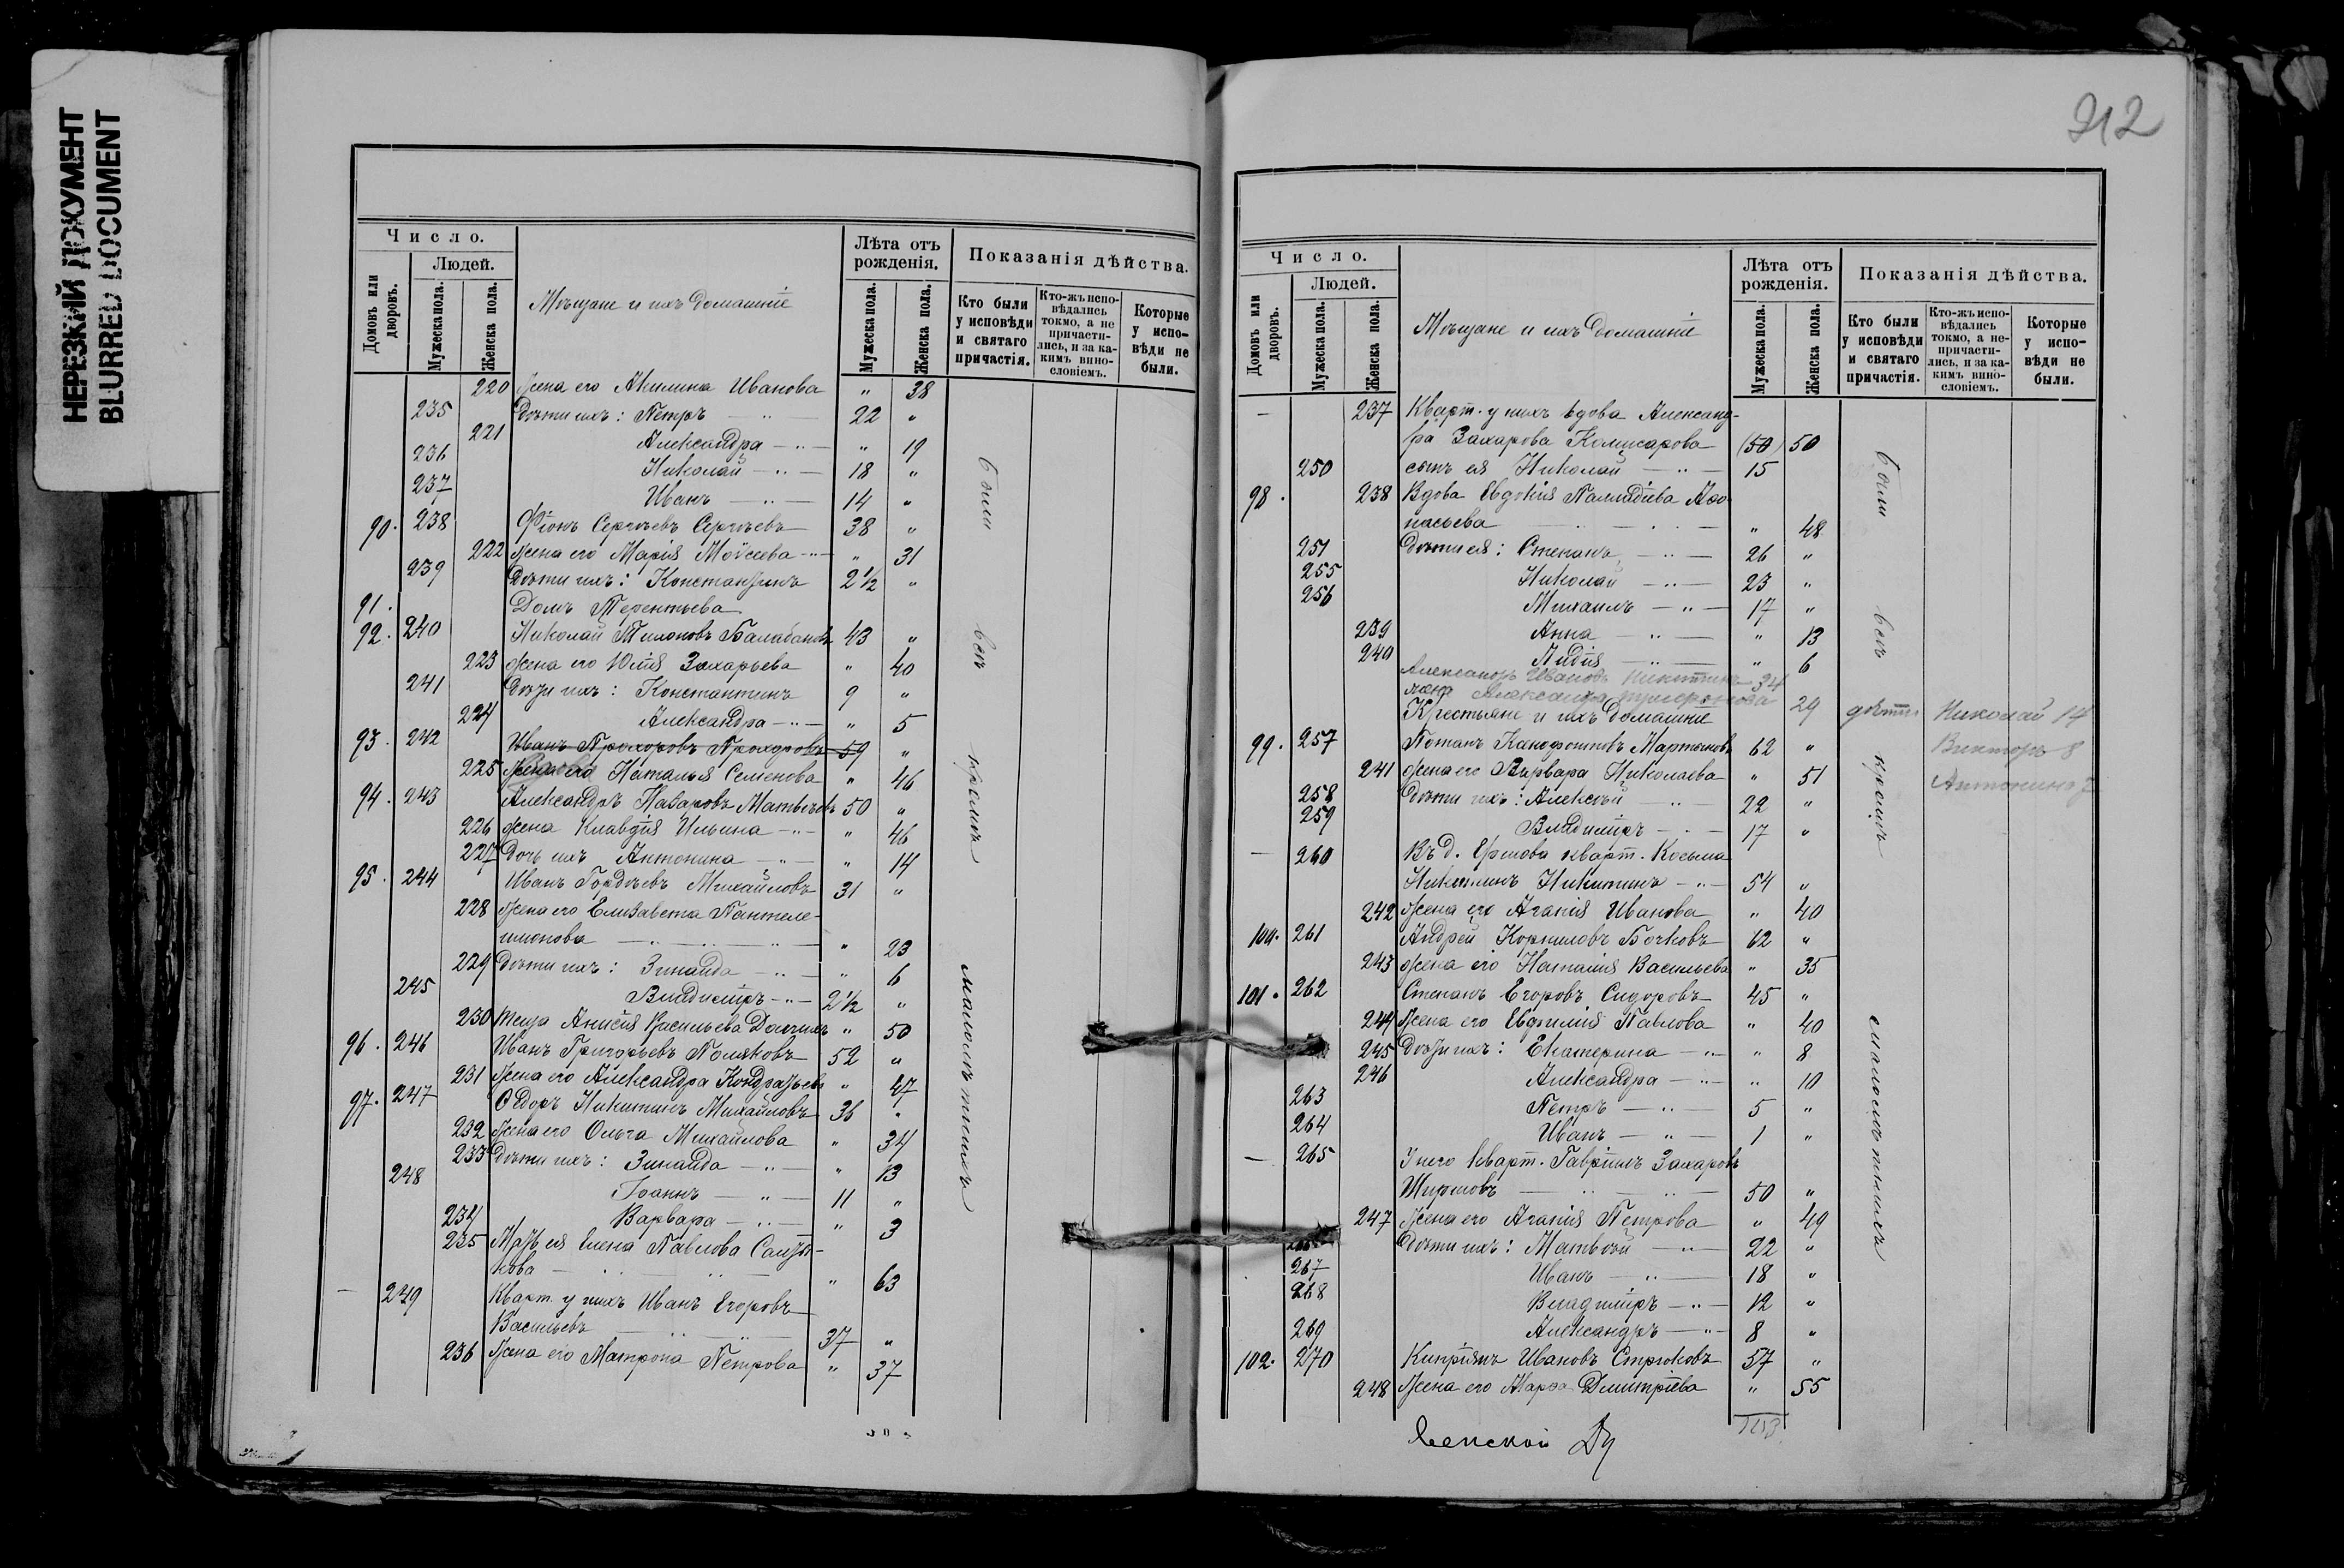 НЕРЕЗКИЙ ДОКУМЕНТ
BLURRED DOCUMENT
Число.
Людей.
Домовъ или дворовъ.
Мужеска пола.
Женска пола.
Мѣщане и ихъ домашніе
Лѣта отъ рожденія.
Мужеска пола.
Женска пола.
Показанія дѣйства.
Кто были у исповѣди и святаго причастія.
Кто-жъ исповѣдались токмо, а не причастились, и за какимъ винословіемъ.
Которые у исповѣди не были.
220 Жена его Акилина Иванова " 38
235 Дѣти ихъ: Петръ — " 22 "
221 Александра — " — " 19
236 Николай — " — 18 "
237 Иванъ — " — 14 "
90. 238 Фіонъ Сергѣевъ Сергѣевъ 38 "
222 Жена его Марія Моисеева — " — " 31
239 Дѣти ихъ: Константинъ 2½ "
91. Домъ Терентьева
92. 240 Николай Тихоновъ Балабановъ 43 "
223 Жена его Юлія Захарьева " 40
241 Дѣти ихъ: Константинъ 9 "
224 Александра — " — " 5
93. 242 Иванъ Прохоровъ Прохоровъ 59 "
225 Жена его Наталья Семенова " 46
94. 243 Александръ Назаровъ Матвѣевъ 50 "
226 Жена Клавдія Ильина — " — " 46
227 Дочь ихъ Антонина — " — " 14
95. 244 Иванъ Гордѣевъ Михайловъ 31 "
228 Жена его Елизавета Пантеле-
имонова — " — " 23
229 Дѣти ихъ: Зинаида — " — " 6
245 Владиміръ — " — 2½ "
230 Теща Анисія Васильева " 50
96. 246 Иванъ Григорьевъ Поляковъ 52 "
231 Жена его Александра Кондратьева " 47
97. 247 Ѳедоръ Никитинъ Михайловъ 36 "
232 Жена его Ольга Михайлова " 34
233 Дѣти ихъ: Зинаида — " — " 13
248 Іоаннъ — " — 11 "
234 Варвара — " — " 3
235 Мать ея Елена Павлова
" 63
— 249 Кварт. у нихъ Иванъ Егоровъ
Васильевъ 37 "
236 Жена его Матрона Петрова " 37
были всѣ кромѣ малолѣтнихъ
212
Число.
Людей.
Домовъ или дворовъ.
Мужеска пола.
Женска пола.
Мѣщане и ихъ домашніе
Лѣта отъ рожденія.
Мужеска пола.
Женска пола.
Показанія дѣйства.
Кто были у исповѣди и святаго причастія.
Кто-жъ исповѣдались токмо, а не-причастились, и за какимъ винословіемъ.
Которые у исповѣди не были.
— 237 Кварт. у нихъ вдова Александ-
ра Захарова Комисарова (50) 50
250 сынъ ея Николай — " — 15
98. 238 Вдова Евдокія Палладіева Аѳо-
насьева " 48
251 Дѣти ея: Степанъ — " — 26 "
255 Николай — " — 23 "
256 Михаилъ — " — 17 "
239 Анна — " — " 13
240 Лидія — " — " 6
Александръ Ивановъ Никитинъ 34
жена Александра 29 дѣти Николай 14
Крестьяне и ихъ домашніе
Викторъ 8
Антонина 7
99. 257 Потапъ Ксенофонтовъ Мартыновъ 62 "
241 Жена его Варвара Николаева " 51
258 Дѣти ихъ: Алексѣй — " 22 "
259 Владиміръ — " — 17 "
— 260 Въ д. Ершова кварт. Косьма
Никитинъ Никитинъ — " — 54 "
242 Жена его Агапія Иванова " 40
100. 261 Андрей Корниловъ Бочковъ 62 "
243 Жена его Наталія Васильева " 35
101. 262 Степанъ Егоровъ Сидоровъ 45 "
244 Жена его Евфимія Павлова " 40
245 Дѣти ихъ: Екатерина — " — " 8
246 Александра — " — " 10
263 Петръ — " — 5 "
264 Иванъ — " — 1 "
— 265 У него кварт. Гавріилъ Захаровъ
50 "
247 Жена его Агапія Петрова " 49
Дѣти ихъ: Матвѣй — " — 22 "
267 Иванъ — " — 18 "
268 Владиміръ — " — 12 "
269 Александръ — " — 8 "
102. 270 Кипріянъ Ивановъ Стрюковъ 57 "
248 Жена его Марѳа Дмитріева " 55
были всѣ кромѣ малолѣтнихъ